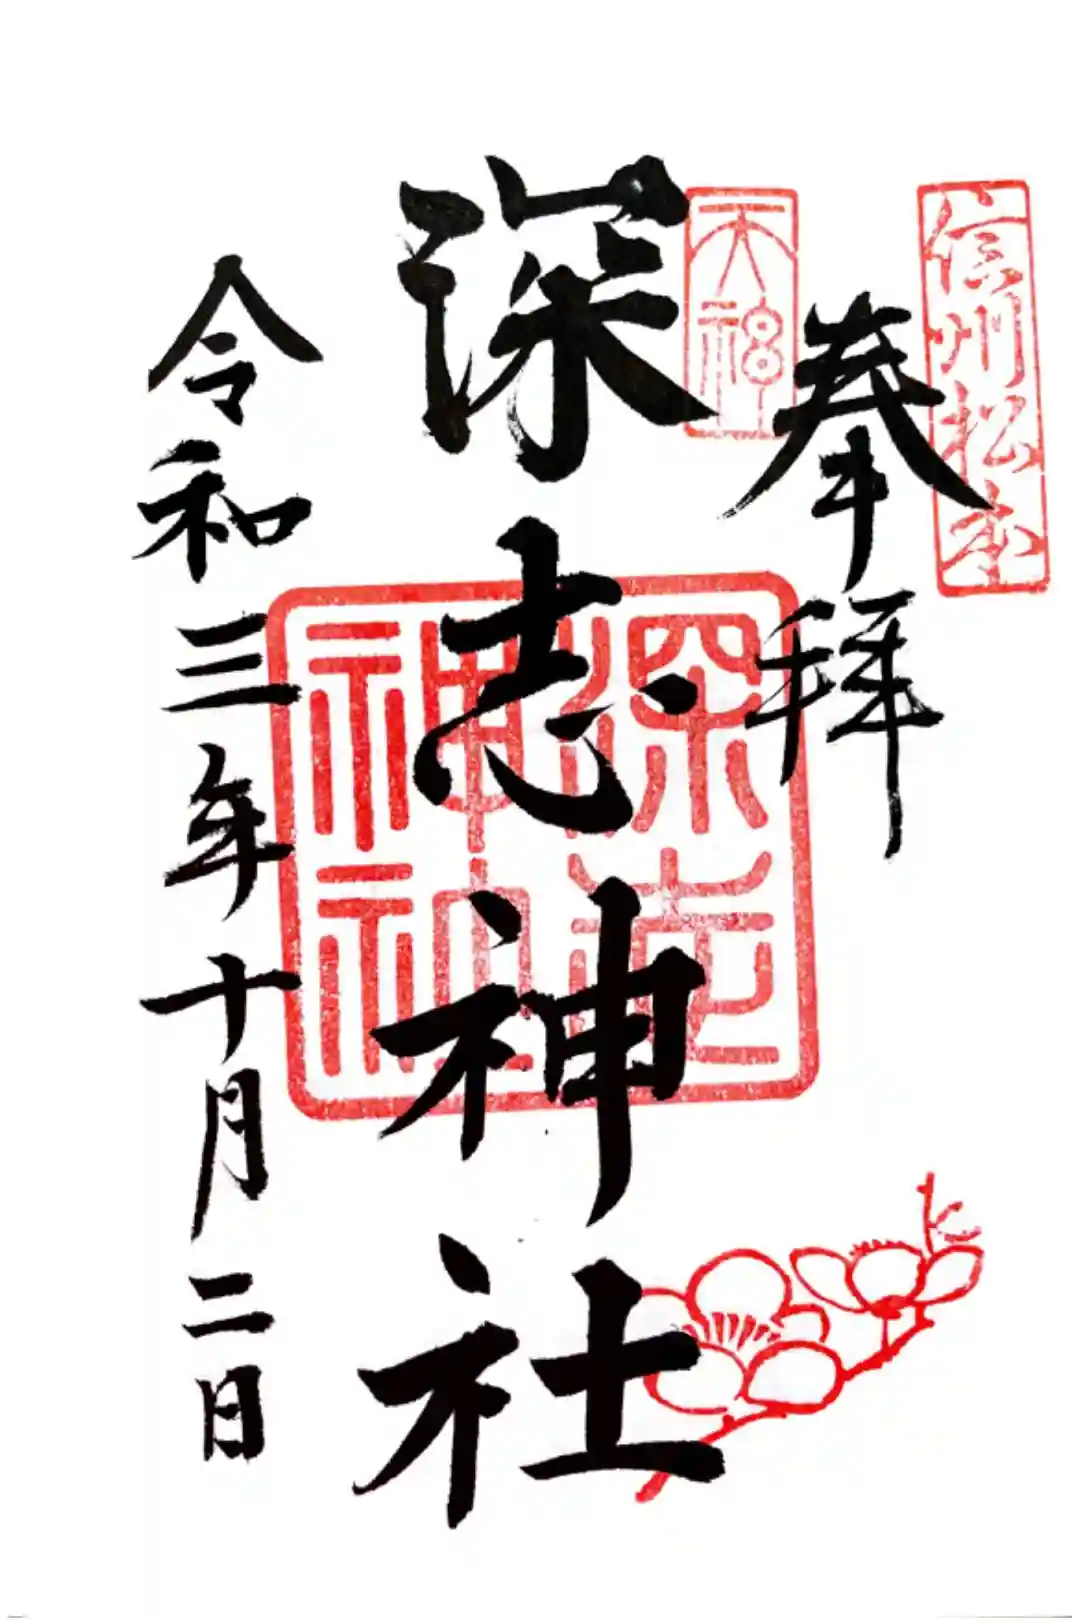 信州松本
奉拝
天神
深志神社
深志神社
令和三年十月二日